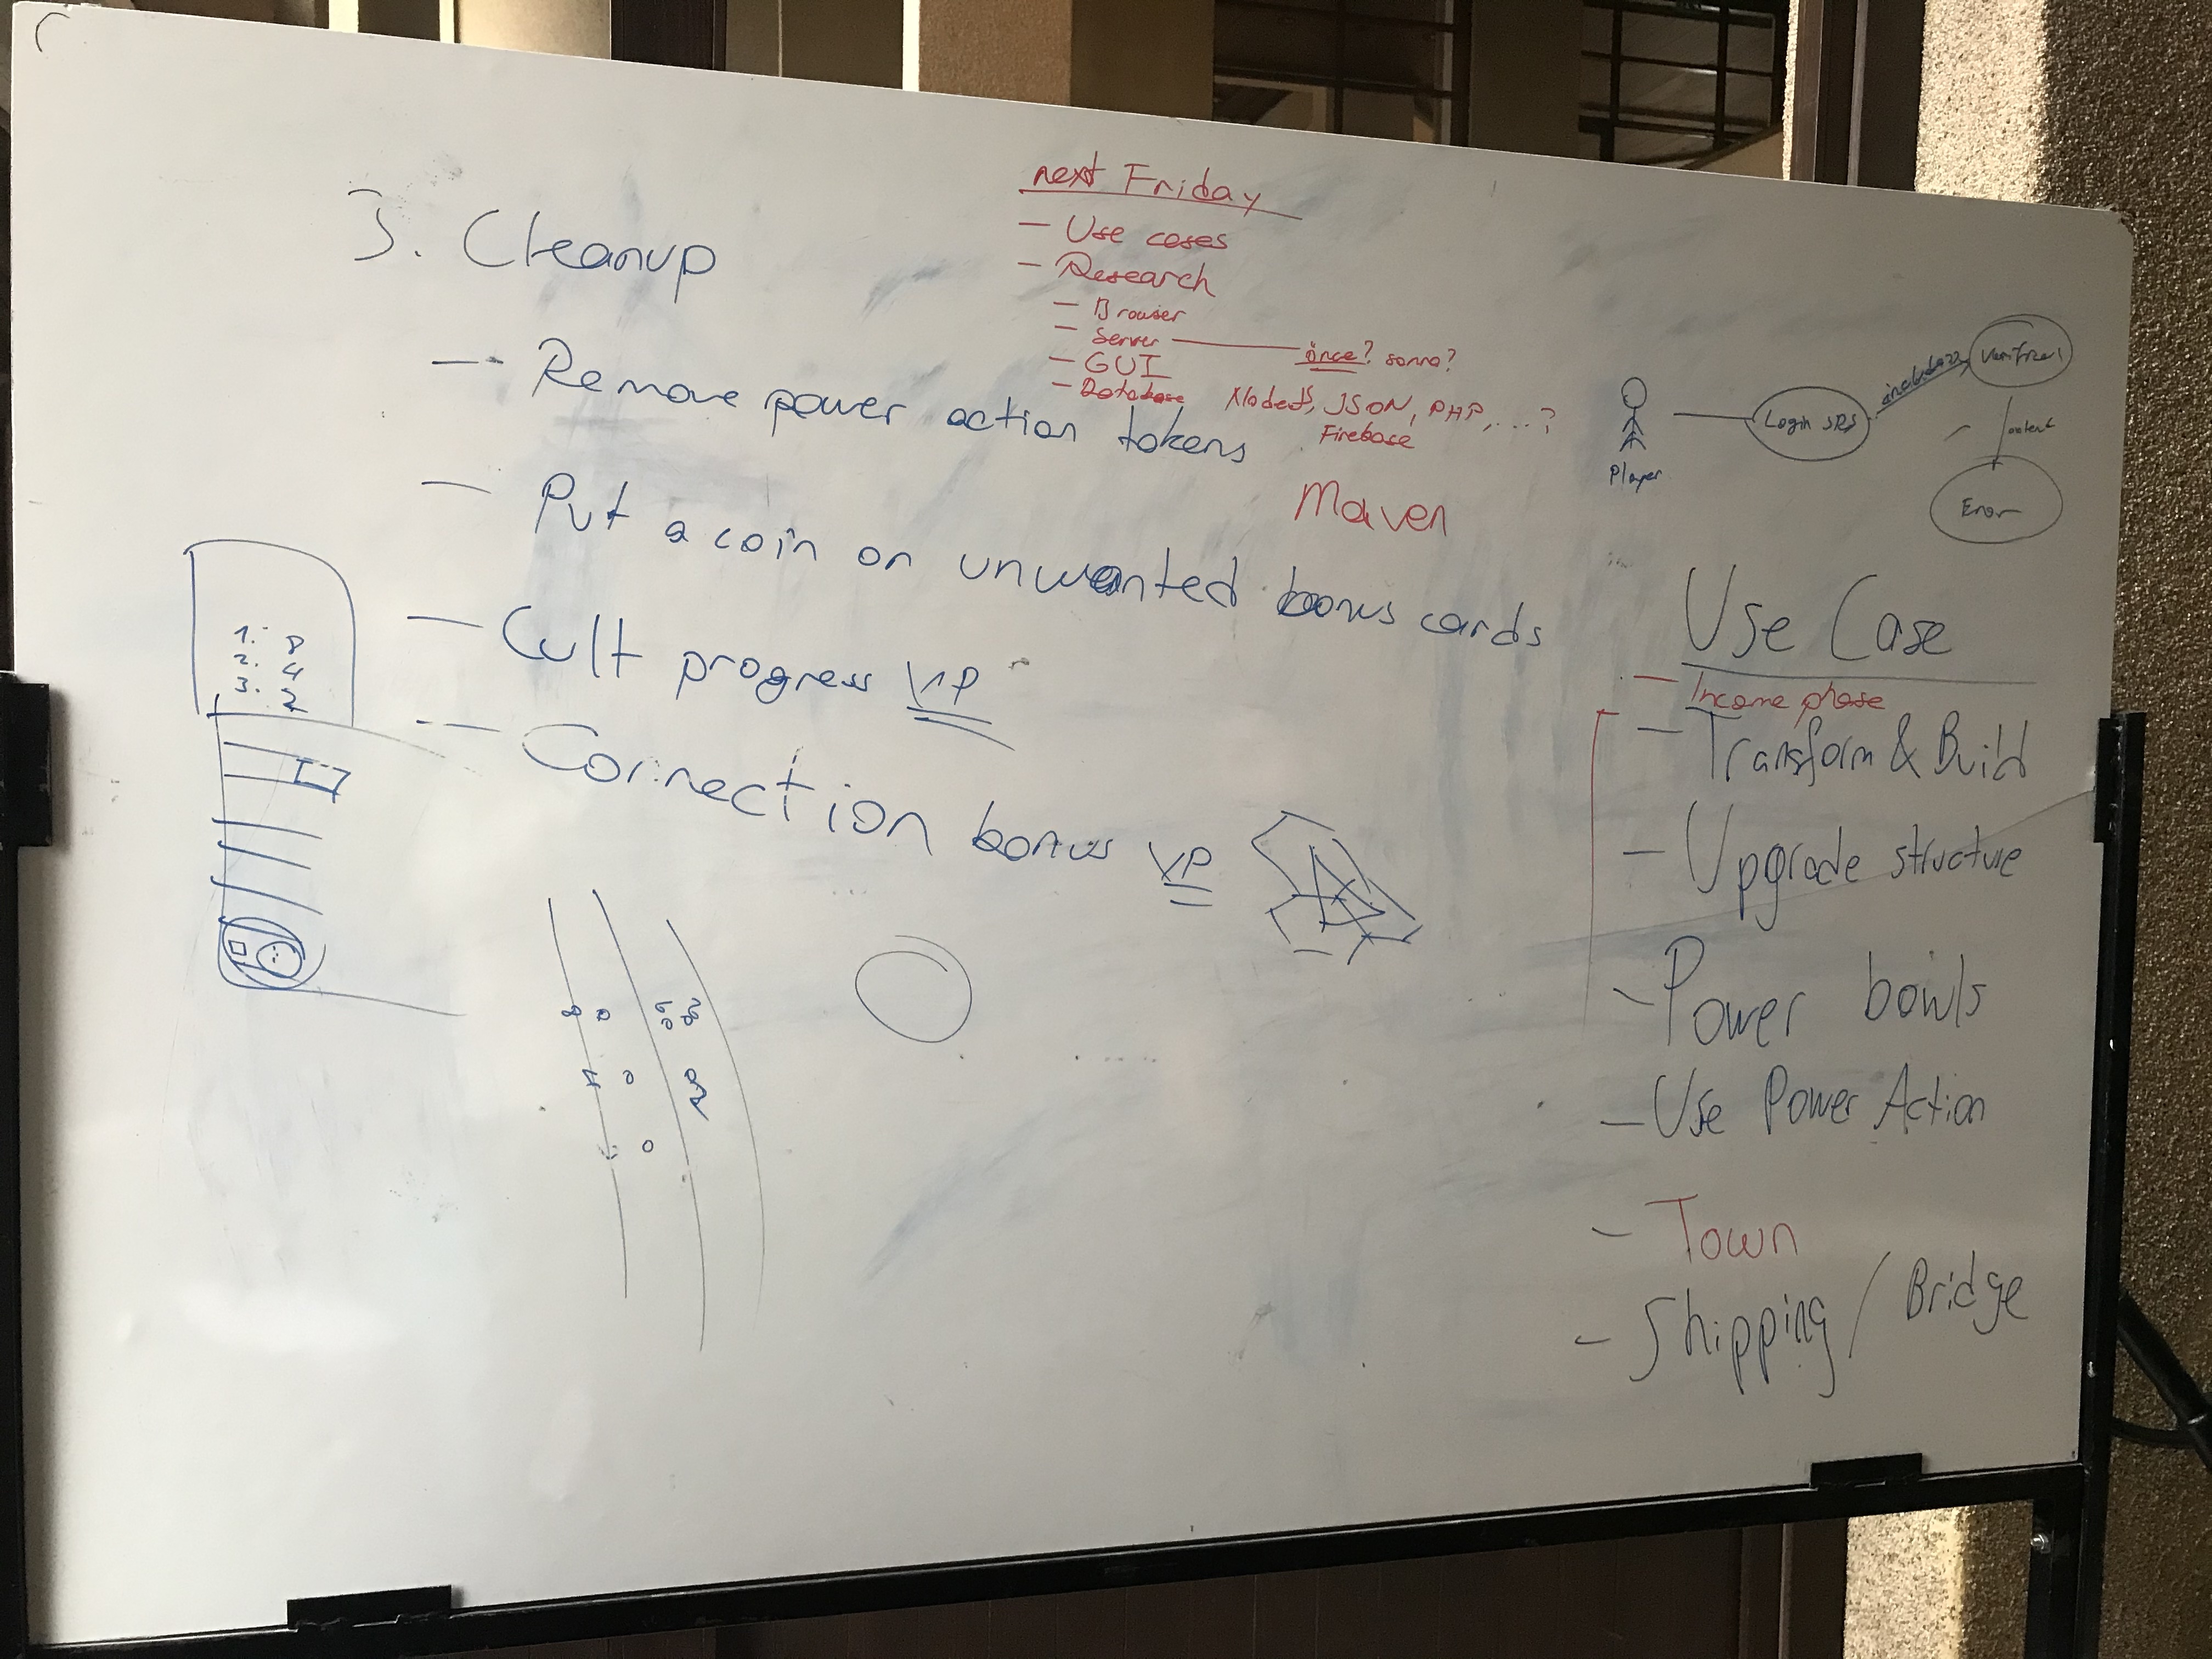 3. Cleanup
— Remove power action tokens
— Put a coin on unwanted bonus cards
— Cult progress VP
— Connection bonus VP
1. 8
2. 4
3. 2
next Friday
— Use cases
— Research
— Browser
— Server — önce? sonra?
— GUI
— Database JSON, PHP, ...?
Firebase
Maven
Player
Login
Error
Use Case
— Income phase
— Transform & Build
— Upgrade structure
- Power bowls
— Use Power Action
- Town
- Shipping / Bridge